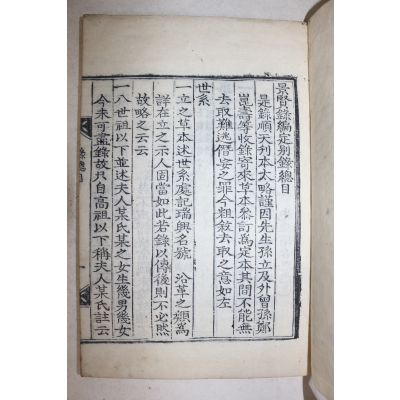 景賢錄編定別錄總目
是錄順天刊本太略謹因先生孫立及外曾孫鄭
崑壽等收錄寄來草本叅訂爲定本其間不能無
去取難逃僭妄之罪今粗敘去取之意如左
世系
一立之草本述世系處記瑞興名號 沿革之頗爲
詳在立之示人固當如此若錄以傳後則不必然
故略之云云
一八世祖以下並述夫人某氏某之女生幾男幾女
今未可盡錄故只自高祖以下稱夫人某氏註云